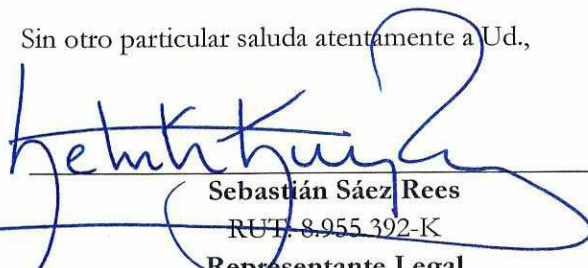 Sin otro particular saluda atentamente a Ud.,
Sebastián Sáez Rees
RUT: 8.955.392-K
Representante Legal